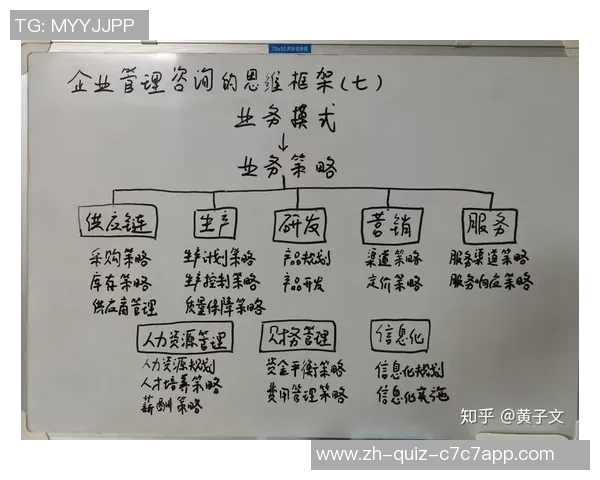 TG: MYYJJPP
企业管理咨询的思维框架(七)
业务模式
↓
业务策略
供应链 生产 研发 营销 服务
采购策略 生产计划策略 产品规划 渠道策略 服务渠道策略
库存策略 生产控制策略 产品开发 定价策略 服务响应策略
供应商管理 质量保障策略
人力资源管理 财务管理 信息化
人力资源规划 资金平衡策略 信息化规划
人才培养策略 费用管理策略 信息化实施
薪酬策略
知乎 @黄子文
www.zh-quiz-c7c7app.com